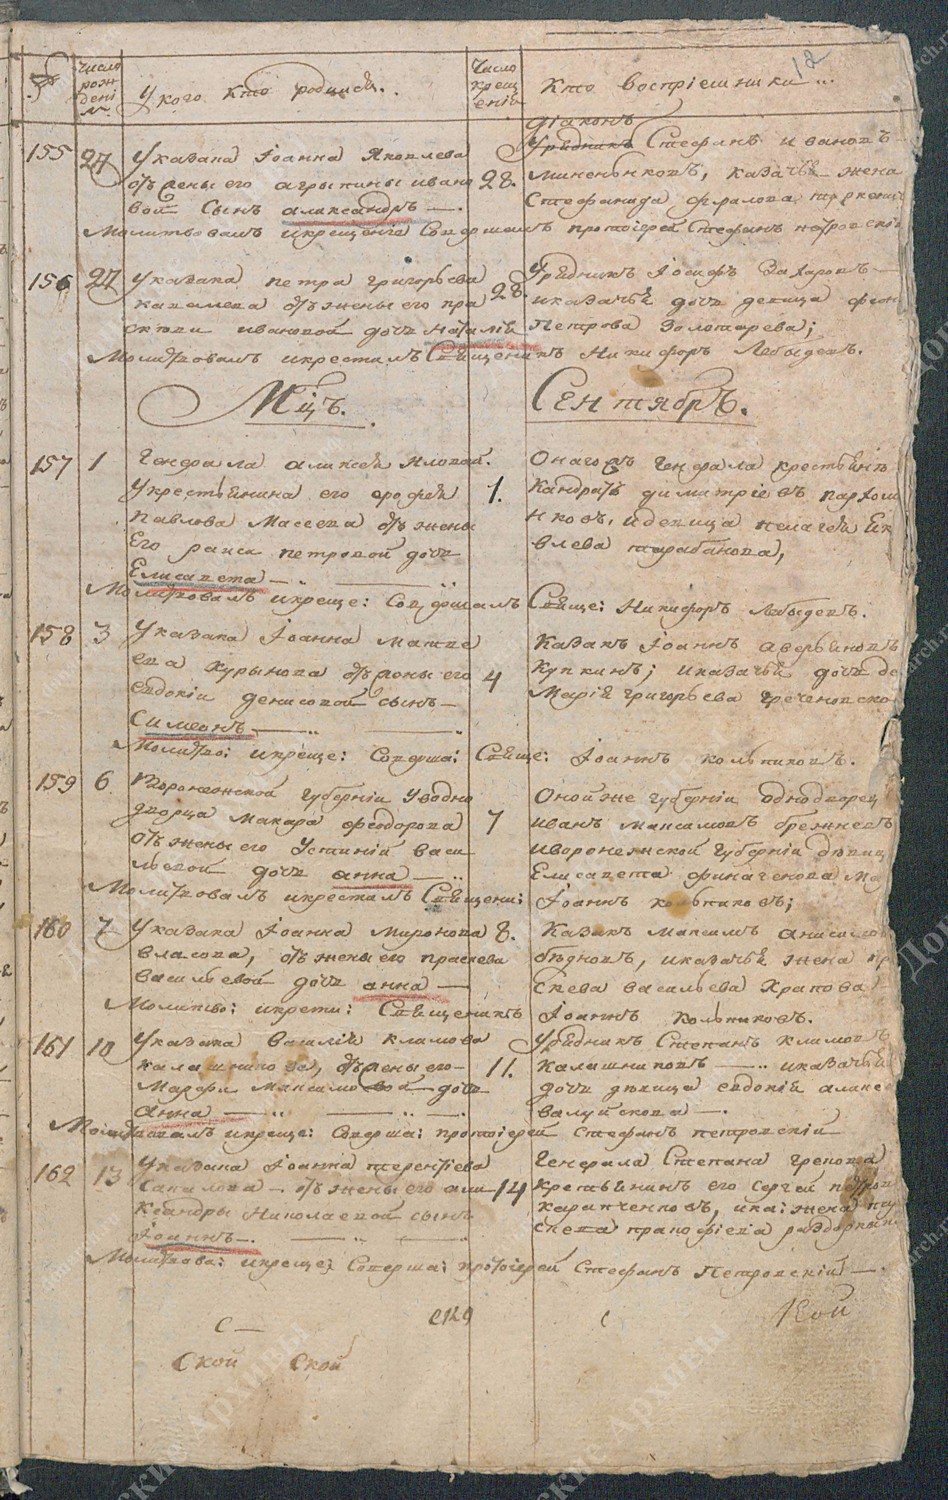 12
№
Число рожденія
У кого кто родился.
Число крещенія
Кто восприемники
155
27
28.
У казака Іоанна Яковлева
отъ жены его агрыпины ивано
вой сынъ александръ —
діаконъ
Урядникъ Стефанъ ивановъ
миненковъ, казачья жена
Стефанида фралова
Молитвовалъ и крещеніе совершалъ протоіерей Стефанъ петровскій
156
27
28.
У казака петра григорьева
кавалева отъ жены его пра
сковіи ивановой дочь наталія
Урядникъ Іосифъ Захаровъ —
и казачья дочь девица
Петрова Золотарева;
Молитвовалъ и крестилъ Священникъ Никифоръ Лебедевъ.
Мцъ. Сентябрь.
157
1
1.
Генерала алексея Иловай.
У крестьянина его ерофея
Павлова Массева отъ жены
Его раиси петровой дочь
Елисавета —
Онагожъ Генерала крестьянинъ
Кандратъ димитріевъ пархом
нковъ, и девица пелагея Як
влева тарабанова,
Молитвовалъ и креще: Совершалъ Свяще: Никифоръ Лебедевъ.
158
3
4
У казака Іоанна матве
ева Курынова отъ жены его
евдокіи денисовой сынъ —
Симеонъ —
Казакъ Іоаннъ аверьяновъ
Купкинъ; и казачья дочь де
Марія григорьева греченовско
Молитво: и креще: Соверша: Свяще: Іоаннъ кольниковъ.
159
6
7
Воронежской губерніи У водно
дворца Макара феодорова
отъ жены его Устиніи васи
льевой дочь анна —
Онойже губерніи однодворец
иванъ максимовъ брежневъ
и воронежской губерніи девиц
Елисавета финагенова Ма
Молитвовалъ и крестилъ Священи: Іоаннъ кольниковъ;
160
7
8.
У казака Іоанна Миронова
власова, отъ жены его праскева
васильевой дочь анна —
Казакъ максимъ анисимов
бедновъ, и казачья жена пр
скева васильева Храпова
Молитво: и крети: Священикъ Іоаннъ Кольниковъ.
161
10
11.
У казака Василія климова
калашникова, отъ жены его —
Марфы Максимовой дочь
анна —
Урядникъ Степанъ климовъ
калашниковъ — и казачья
дочь девица евдокія алексе
валуйскова —.
Молитвовалъ и креще: Соверша: протоіерей Стефанъ петровскій
162
13
14
У казака Іоанна терентіева
Савилова — отъ жены его але
ксандры Николаевой сынъ
Іоаннъ —
Генерала Степана грекова
крестьянинъ его сергей петров
карапченковъ, и ка: жена па
скева пракофіева раздоркин
Молитвова: и креще: Соверша: протоіерей Стефанъ Петровскій —.
с —
ской ской